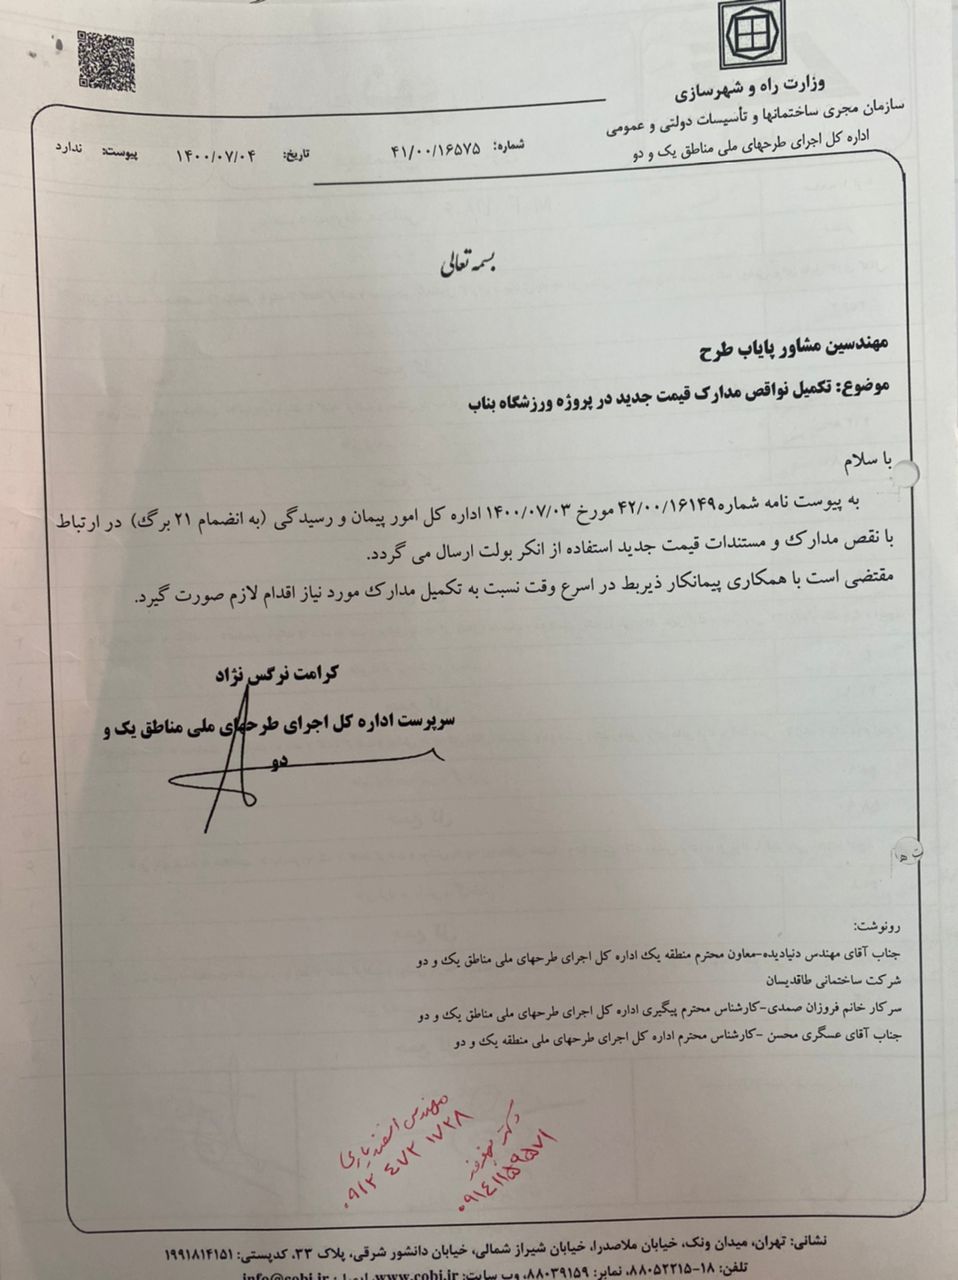 وزارت راه و شهرسازی
سازمان مجری ساختمانها و تأسیسات دولتی و عمومی
اداره کل اجرای طرحهای ملی مناطق یک و دو
شماره: ۴۱/۰۰/۱۶۵۷۵ تاریخ: ۱۴۰۰/۰۷/۰۴ پیوست: ندارد
بسمه تعالی
مهندسین مشاور پایاب طرح
موضوع: تکمیل نواقص مدارک قیمت جدید در پروژه ورزشگاه بناب
با سلام
به پیوست نامه شماره ۴۲/۰۰/۱۶۱۴۹ مورخ ۱۴۰۰/۰۷/۰۳ اداره کل امور پیمان و رسیدگی (به انضمام ۲۱ برگ) در ارتباط
با نقص مدارک و مستندات قیمت جدید استفاده از انکر بولت ارسال می گردد.
مقتضی است با همکاری پیمانکار ذیربط در اسرع وقت نسبت به تکمیل مدارک مورد نیاز اقدام لازم صورت گیرد.
کرامت نرگس نژاد
سرپرست اداره کل اجرای طرحهای ملی مناطق یک و
دو
رونوشت:
جناب آقای مهندس دنیادیده-معاون محترم منطقه یک اداره کل اجرای طرحهای ملی مناطق یک و دو
شرکت ساختمانی طاقدیسان
سرکار خانم فروزان صمدی-کارشناس محترم پیگیری اداره کل اجرای طرحهای ملی مناطق یک و دو
جناب آقای عسگری محسن -کارشناس محترم اداره کل اجرای طرحهای ملی منطقه یک و دو
مهندس اسفندیاری
۰۹۱۲ ۴۷۲ ۱۷۲۸
دکتر
۰۹۱۴۱۱۵۹۵۷۱
نشانی: تهران، میدان ونک، خیابان ملاصدرا، خیابان شیراز شمالی، خیابان دانشور شرقی، پلاک ۳۳، کدپستی: ۱۹۹۱۸۱۴۱۵۱
تلفن: ۱۸-۸۸۰۵۲۲۱۵، نمابر: ۸۸۰۳۹۱۵۹، وب سایت: www.cobi.ir، ایمیل: info@cobi.ir